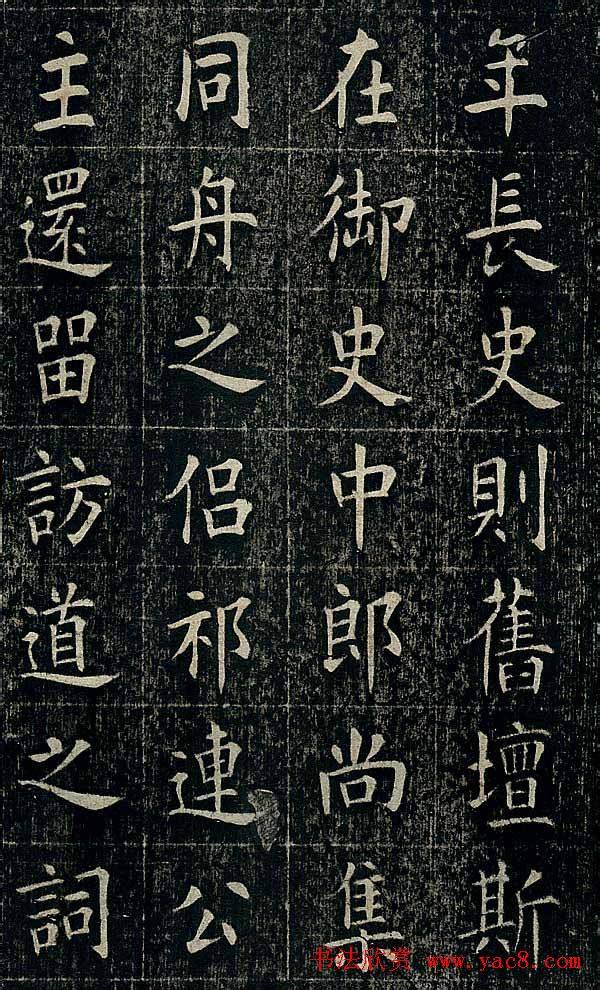 年長史則舊壇斯
在御史中郎尚集
同舟之侶祁連公
主還留訪道之詞
书法欣赏 www.yac8.com